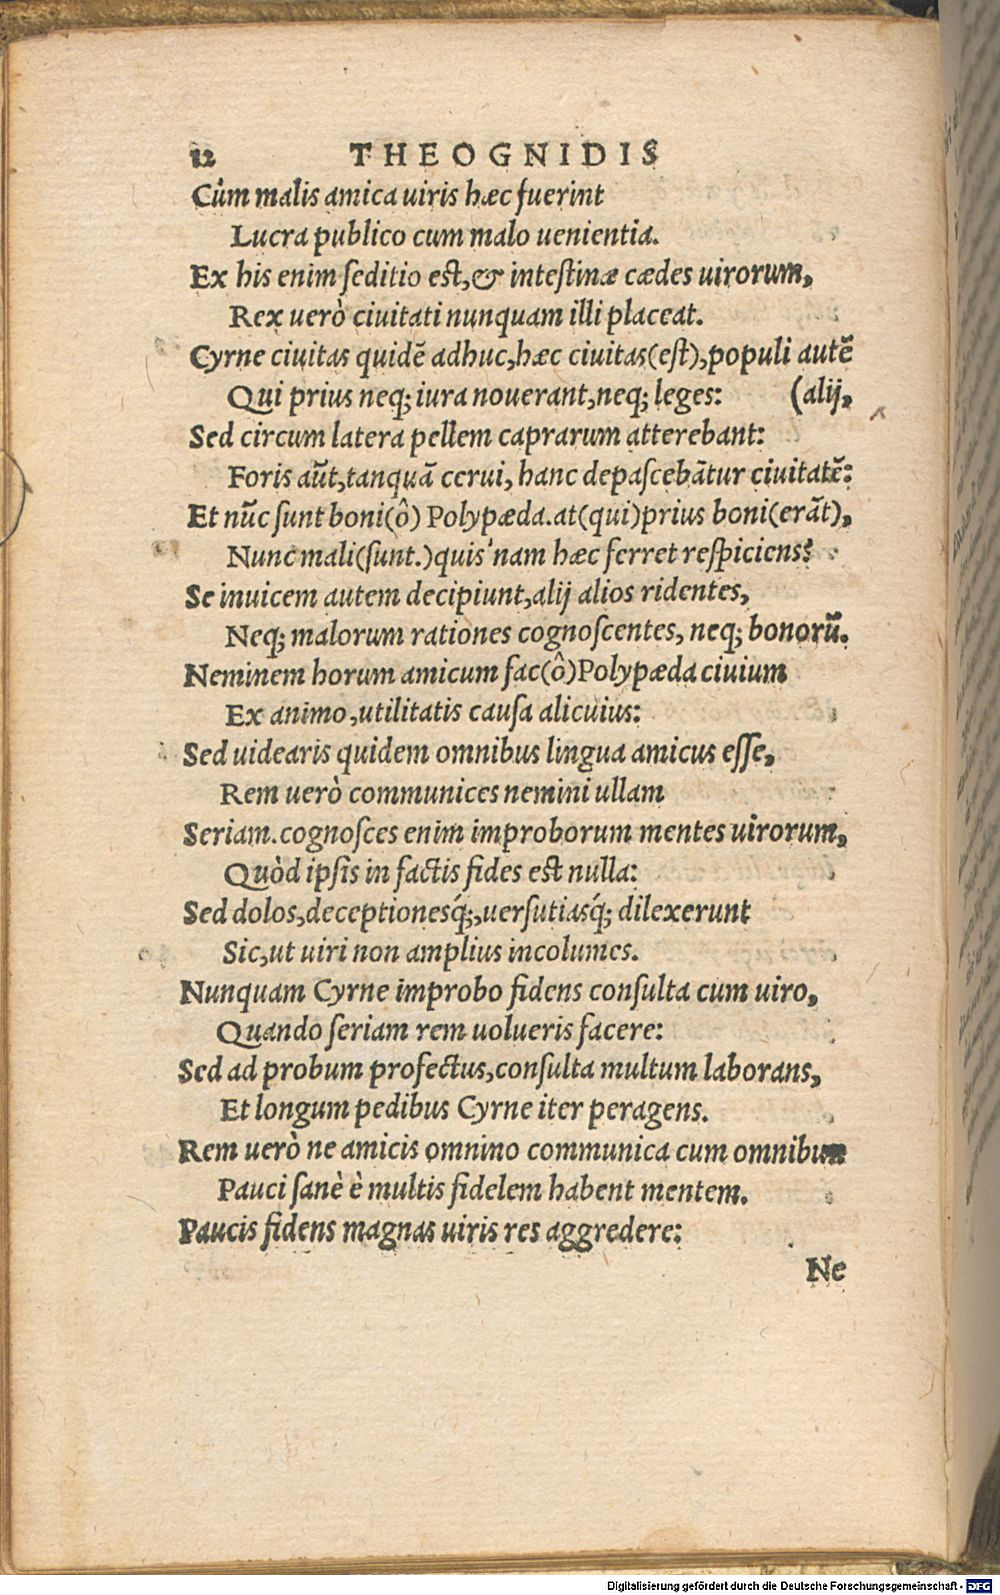 12 THEOGNIDIS
Cùm malis amica uiris hæc fuerint
Lucra publico cum malo uenientia.
Ex his enim ſeditio eſt,& inteſtinæ cædes uirorum,
Rex uerò ciuitati nunquam illi placeat.
Cyrne ciuitas quidē adhuc,hæc ciuitas(eſt),populi autē
Qui prius neq; iura nouerant,neq; leges: (alij,
Sed circum latera pellem caprarum atterebant:
Foris aūt,tanquā cerui, hanc depaſcebātur ciuitatē:
Et nūc ſunt boni(ô) Polypæda.at(qui)prius boni(erāt),
Nunc mali(ſunt.)quis'nam hæc ferret reſpiciens?
Se inuicem autem decipiunt,alij alios ridentes,
Neq; malorum rationes cognoſcentes, neq; bonorū.
Neminem horum amicum fac(ô)Polypæda ciuium
Ex animo,utilitatis cauſa alicuius:
Sed uidearis quidem omnibus lingua amicus eſſe,
Rem uerò communices nemini ullam
Seriam.cognoſces enim improborum mentes uirorum,
Quòd ipſis in factis fides eſt nulla:
Sed dolos,deceptionesq́;,uerſutiasq́; dilexerunt
Sic,ut uiri non amplius incolumes.
Nunquam Cyrne improbo fidens conſulta cum uiro,
Quando ſeriam rem uolueris facere:
Sed ad probum profectus,conſulta multum laborans,
Et longum pedibus Cyrne iter peragens.
Rem uerò ne amicis omnino communica cum omnibus
Pauci ſanè è multis fidelem habent mentem.
Paucis fidens magnas uiris res aggredere:
Ne
Digitalisierung gefördert durch die Deutsche Forschungsgemeinschaft - DFG